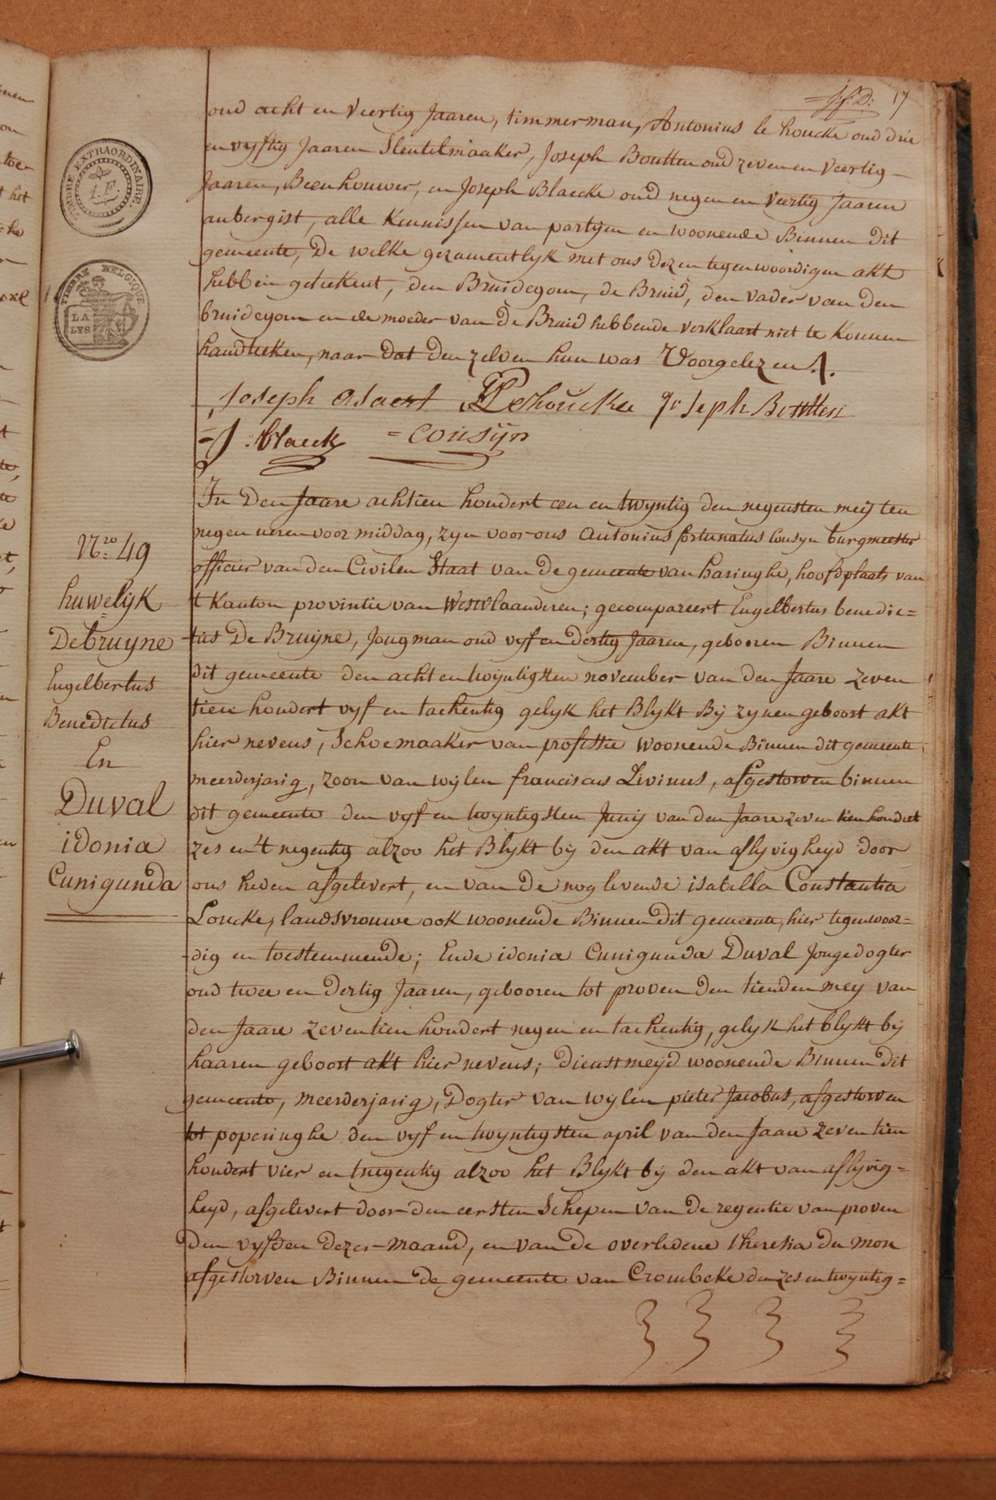 17
oud acht en veertig Jaaren, timmerman, Antonius le houcke oud drie
en vyftig Jaaren Sleutelmaaker, Joseph Boutten oud zeven en veertig
Jaaren, Beenhouwer, en Joseph Blaecke oud negen en veertig Jaaren
aubergist, alle Kennissen van partyen en woonende Binnen dit
gemeente, De welke gezamentlyk met ons dezen tegenwoordigen akt
hebben geteekent, den Bruidegom, de Bruid, den vader van den
bruidegom en de moeder van de Bruid hebbende verklaart niet te konnen
handteeken, naar dat den zelven hun was voorgelezen
Joseph Lehoucke Joseph Boutten
J: blaeck Consijn
TIMBRE EXTRAORDINAIRE
TIMBRE BELGIQUE
LA LYS
Nro 49
huwelijk
Debruyne
Engelbertus
Benedictus
En
Duval
idonia
Cunigunda
In den Jaare achtien hondert een en twyntig den negensten meij ten
negen uren voor middag, zyn voor ons Antonius fortunatus Consyn burgmeester
officier van den Civilen Staat van de gemeente van haringhe, hoofdplaats van
't Kanton provintie van Westvlaanderen; gecompareert Engelbertus benedic-
tus De Bruyne, Jongman oud vyf en dertig Jaaren, gebooren Binnen
dit gemeente den acht en twyntigsten november van den Jaare zeven
tien hondert vyf en tachentig gelyk het Blykt Bij zynen geboort akt
hier nevens, Schoemaaker van professie woonende Binnen dit gemeente,
meerderjarig, zoon van wylen franciscus Livinus, afgestorven binnen
dit gemeente den vyf en twyntigsten Junij van den Jaare zeven tien hondert
zes en 't negentig alzoo het Blykt bij den akt van aflyvigheyd door
ons heden afgelevert, en van de nog levende isabella Constantia
Loucke, landsvrouwe ook woonende Binnen dit gemeente, hier tegenwoor-
dig en toestemmende; Ende idonia Cunigunda Duval Jongedogter
oud twee en dertig Jaaren, gebooren tot proven den tienden mey van
den Jaare zeventien hondert negen en tachentig, gelyk het blykt bij
haaren geboort akt hier nevens; dienstmeyd woonende Binnen dit
gemeente, meerderjarig, Dogter van wylen pieter Jacobus, afgestorven
tot poperinghe den vyf en twyntigsten april van den Jaare zeven tien
hondert vier en tnegentig alzoo het Blykt bij den akt van aflyvig-
heyd, afgelevert door den eersten Schepen van de regentie van proven
den vyfden dezer maand, en van de overledene theresia du mon
afgestorven Binnen de gemeente van Crombeke den zes en twyntig-